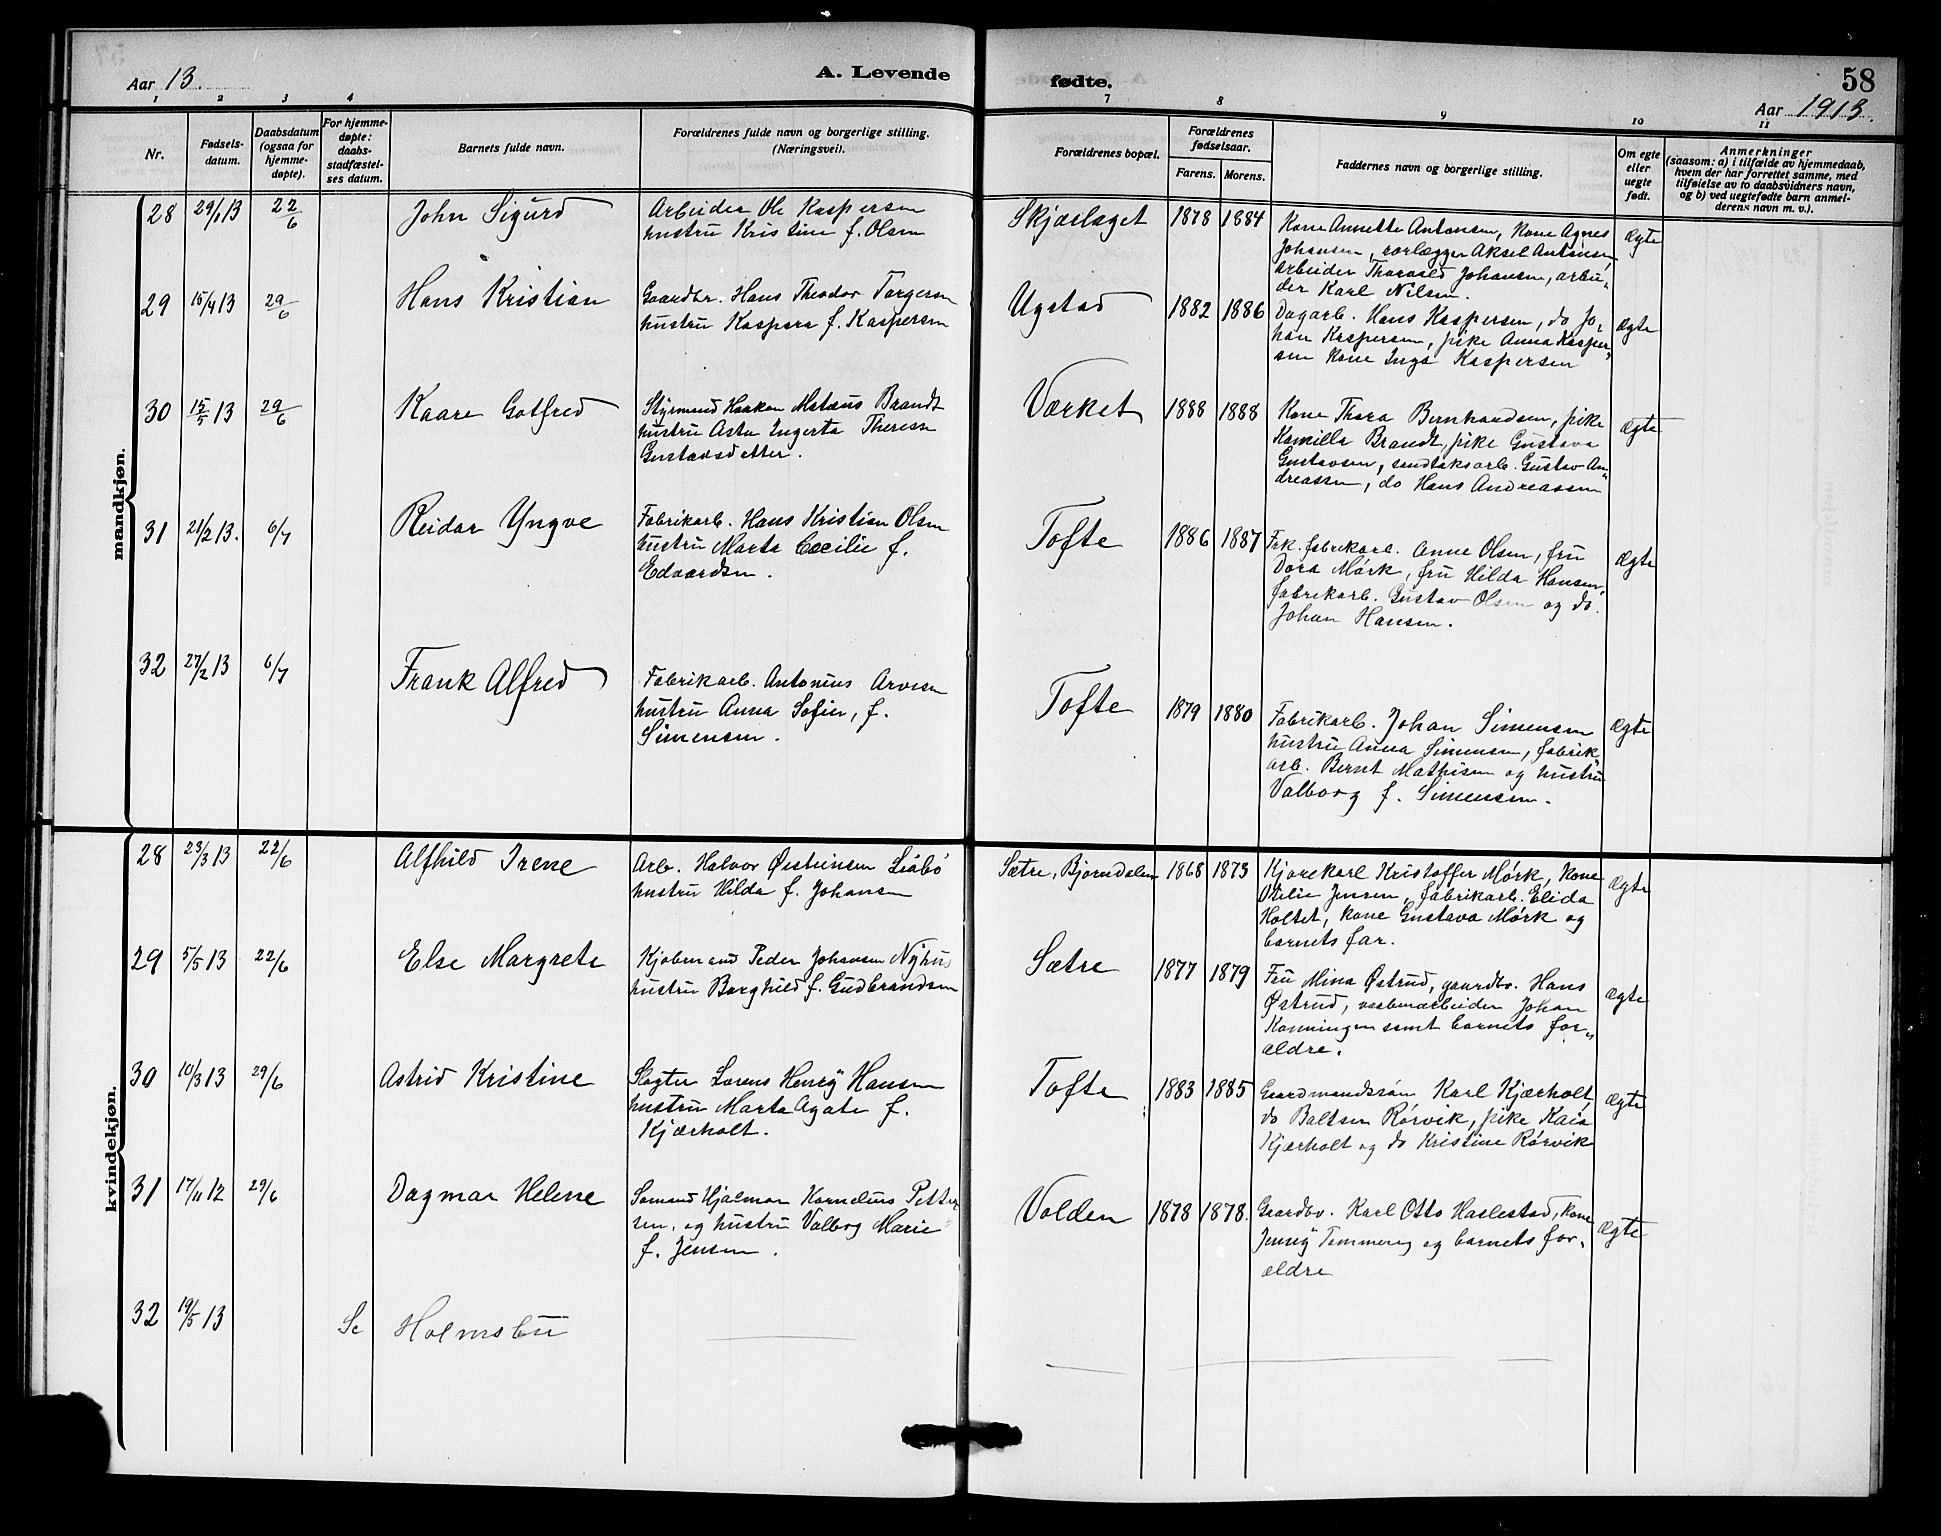 Aar 13.
A. Levende
1 2 3 4
Nr.
Fødsels-
datum.
Daabsdatum
(ogsaa for
hjemme-
døpte).
For hjemme-
døpte:
daabs-
stadfæstel-
ses datum.
Barnets fulde navn.
Forældrenes fulde navn og borgerlige stilling.
(Næringsvei).
mandkjøn.
28 29/1 13 22/6 John Sigurd
Arbeider Ole Kaspersen
hustru Kristine f. Olsen
29 15/4 13 29/6 Hans Kristian
Gaardbr. Hans Theodor Torgersen
hustru Kaspara f. Kaspersen
30 15/5 13 29/6 Kaare Gotfred
Styrmand Haakon Matæus Brandt
hustru Asta Ingerta Therese
Gustavsdatter.
31 21/2 13. 6/7 Reidar Yngve
Fabrikarb. Hans Kristian Olsen
hustru Marta Cecilie f.
Edvardsen.
32 27/2 13 6/7 Frank Alfred
Fabrikarb. Antonius Arvesen
hustru Anna Sofie, f.
Simensen.
kvindekjøn.
28 23/3 13 22/6 Alfhild Irene
Arb. Halvor Østensen
hustru Hilda f. Johansen
29 5/5 13 22/6 Else Margrete
Kjøbmand Peder Johansen Nyhus
hustru Borghild f. Gudbrandsen
30 10/3 13 29/6 Astrid Kristine
Slagter Lorens Henry Hansen
hustru Marta Agate f.
Kjærholt.
31 17/11 12 29/6 Dagmar Helene
Sømand Hjalmar Kornelius Petter
sen, og hustru Valborg Marie
f. Jensen.
32 19/5 13 Se Holmsbu
fødte.
58
Aar 1913.
7 8 9 10 11
Forældrenes bopæl.
Forældrenes
fødselsaar.
Farens. Morens.
Faddernes navn og borgerlige stilling.
Om egte
eller
uegte
født.
Anmerkninger
(saasom: a) i tilfælde av hjemmedaab,
hvem der har forrettet samme, med
tilføielse av to daabsvidners navn,
og b) ved uegtefødte barn anmel-
derens navn m. v.).
Skjøslaget 1878 1884
Kone Annette Antonsen, kone Agnes
Johansen, rørlægger Aksel Antonsen
arbeider Thorvald Johansen, arbei-
der Karl Nilsen.
Ægte
Ugstad 1882 1886
Dagarb. Hans Kaspersen, do Jo-
han Kaspersen, pike Anna Kasper-
sen kone Inga Kaspersen
Ægte
Værket 1888 1888
Kone Thora Bernhardsen, pike
Kamilla Brandt, pike Gustava
Gustavsen, sandtaksarb. Gustav An-
dreassen, do Hans Andreassen
Ægte
Tofte 1886 1887
Frk. fabrikarb. Anne Olsen, fru
Dora Mørk, fru Hilda Hansen,
fabrikarb. Gustav Olsen og do.
Johan Hansen.
Ægte
Tofte 1879 1880
Fabrikarb. Johan Simensen
hustru Anna Simensen, fabrik-
arb. Bernt Mathisen og hustru
Valborg f. Simensen.
Ægte
Sætre, Bjørndalen 1868 1873
Kjørekarl Kristoffer Mørk, kone
Otilie Jensen, fabrikarb. Elida
Holtet, kone Gustava Mørk og
barnets far.
Ægte
Sætre 1877 1879
Fru Mina Østrud, gaardbr. Hans
Østrud, vaabenarbeider Johan
Konningen samt barnets for-
ældre.
Ægte
Tofte 1883 1885
Gaardmandssøn Karl Kjærholt,
do Baltser Rørvik, pike Kaia
Kjærholt og do Kristine Rørvik
Ægte
Volden 1878 1878.
Gaardbr. Karl Otto Haslestad, kone
Jenny Tømmerey og barnets for-
ældre
Ægte